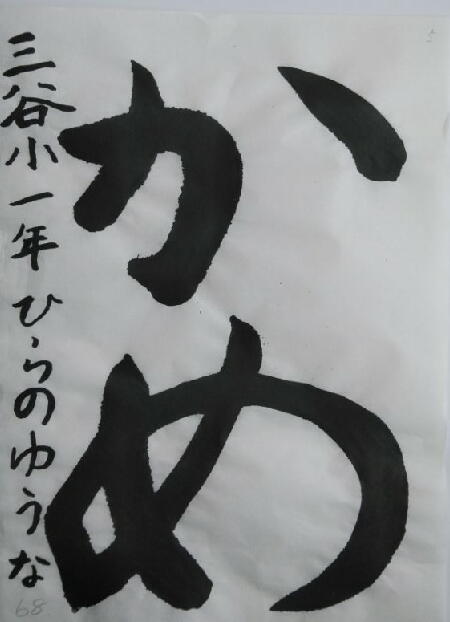 かめ
三谷小一年ひらのゆうな
68